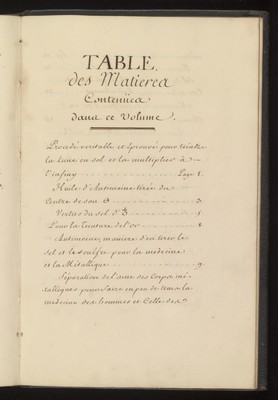 TABLE.
des Matieres
Contenües
dans ce Volume.
Procedé veritable et éprouvé pour teindre
la Lune en sol et la multiplier à
l'infiny Page 1.
Huile d'Antimoine tirée du
Centre de son 3
Vertus du sel d' 5
Pour la teinture de l'or 8
Antimoine, maniere d'en tirer le
sel et le soulfre pour la medecine
et la Metallique 9
Séparation de l'ame des Corps mé-
talliques pour faire en peu de tems la
medecine des hommes et Celle des